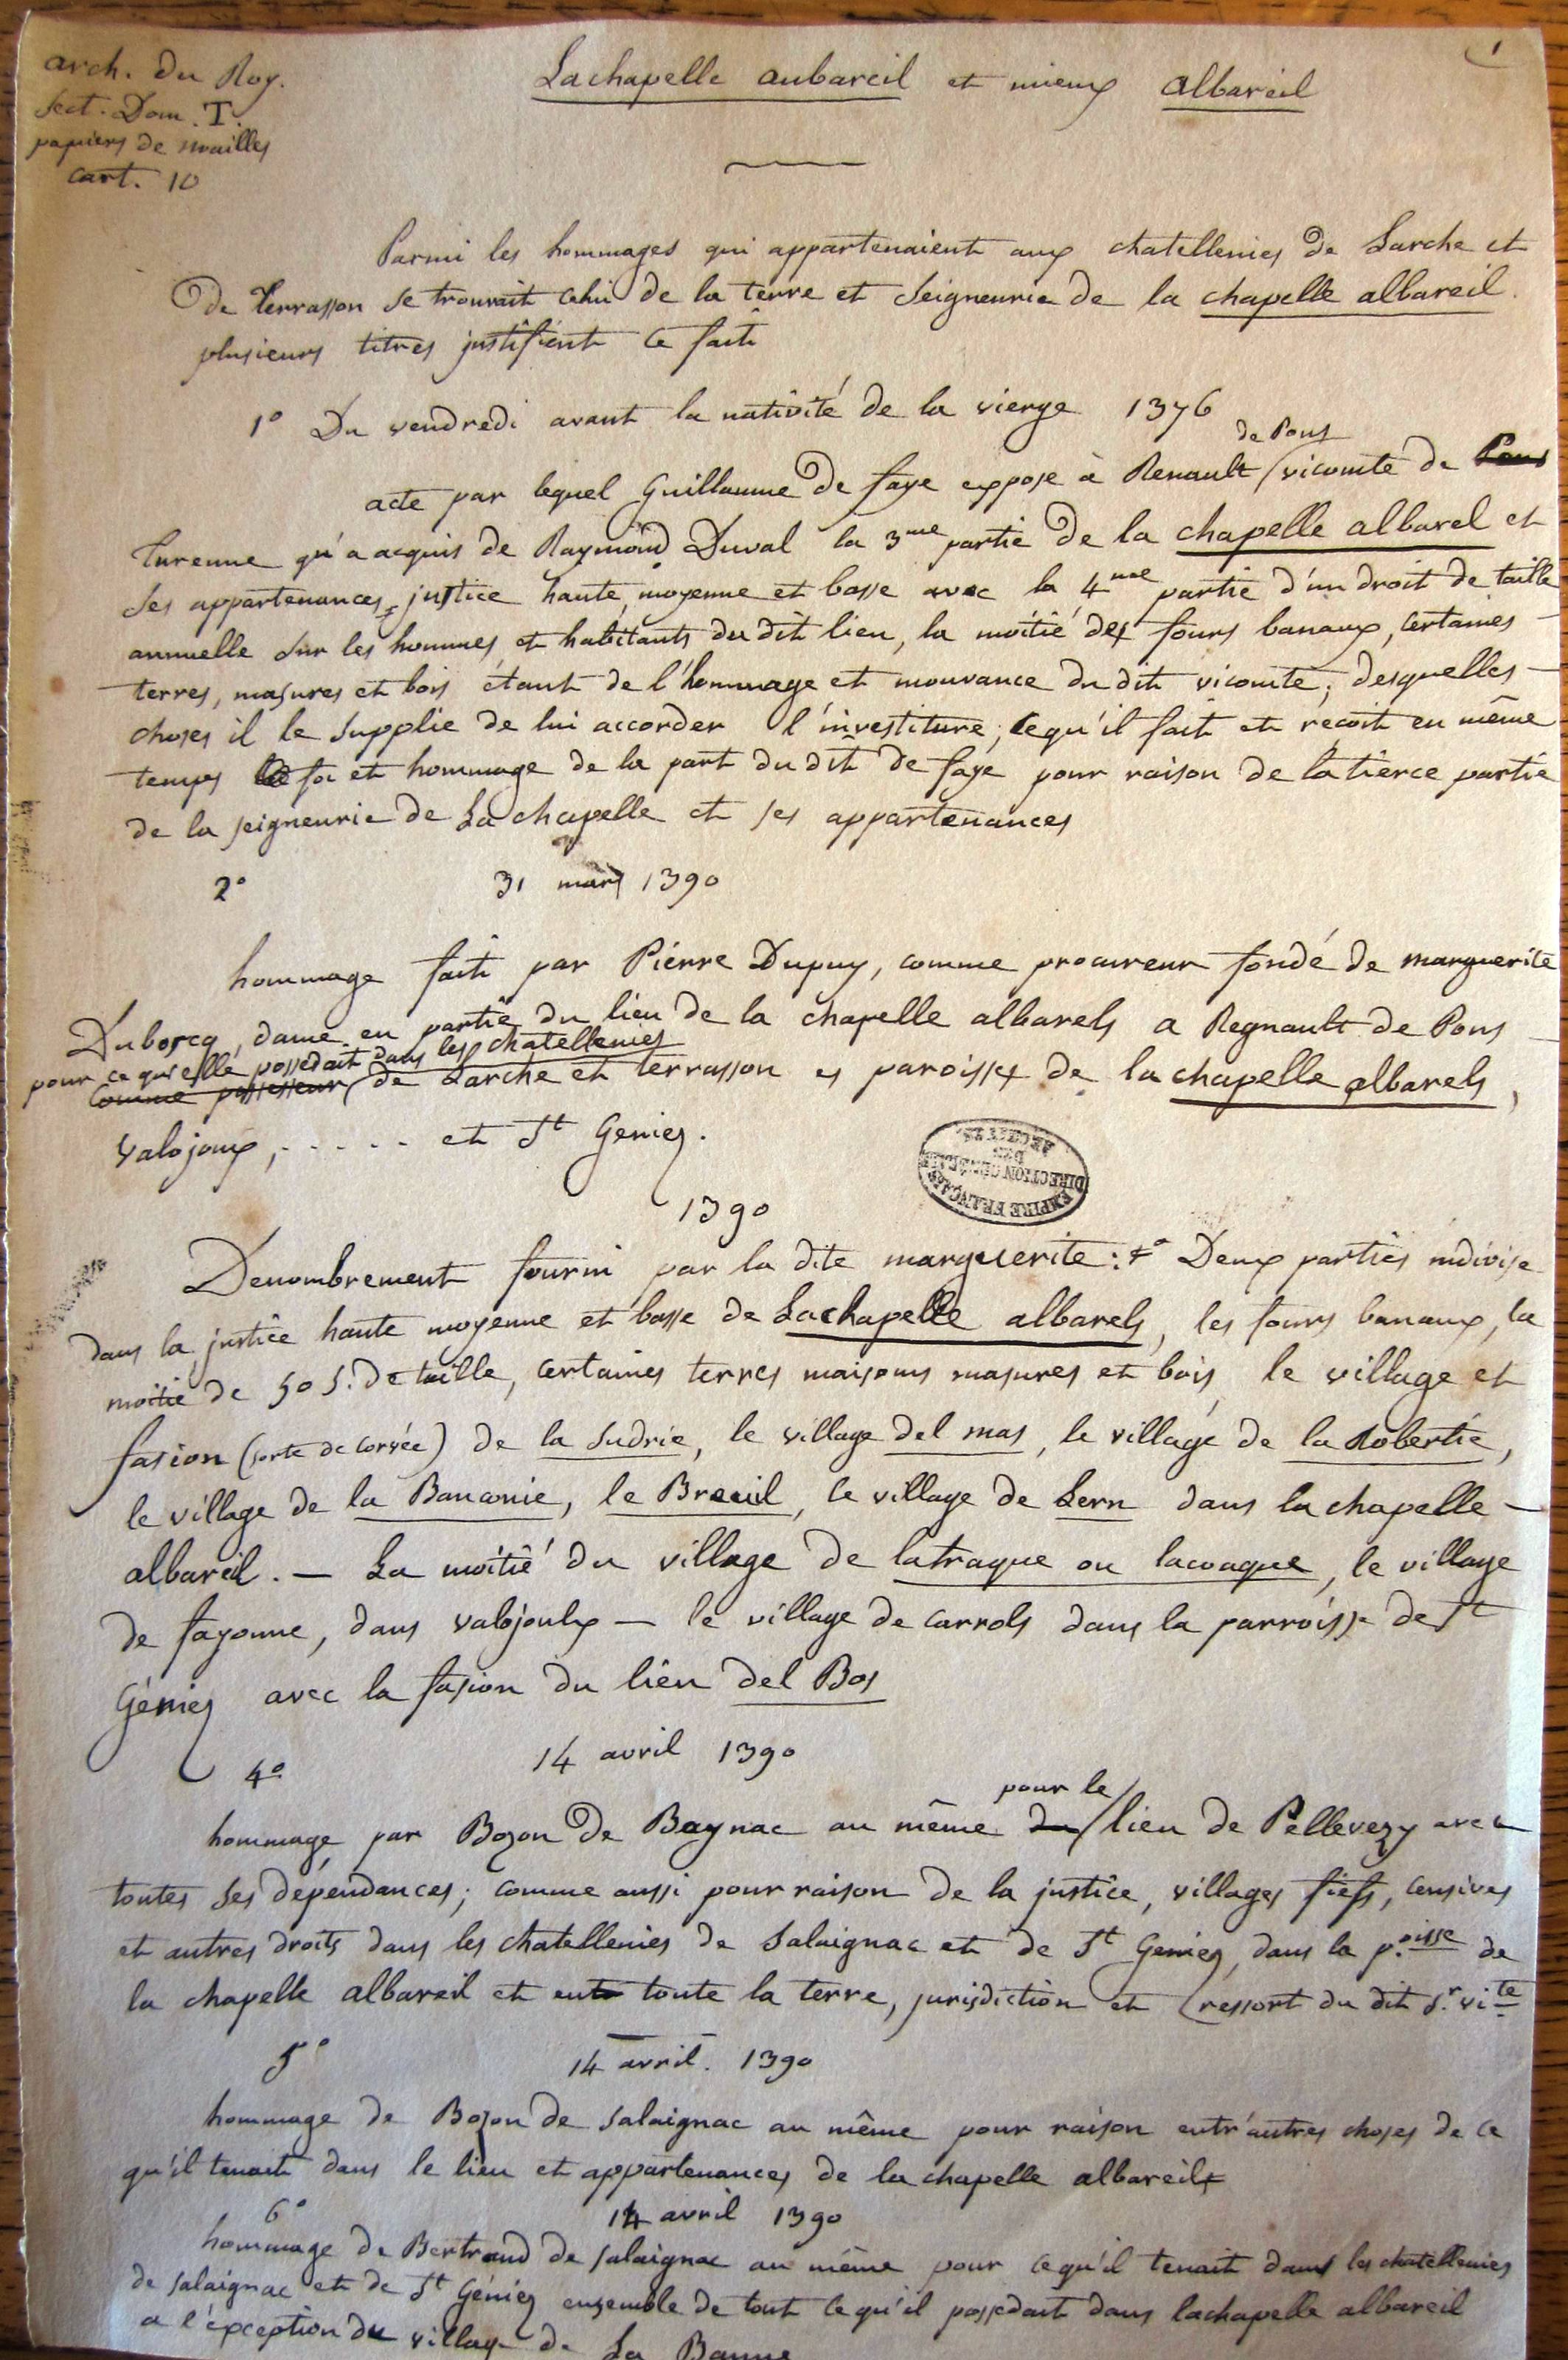 1
arch. du Roy.
Sect. Dom. T.
papiers de noailles
cart. 10
Lachapelle aubareil et mieux albareil
Parmi les hommages qui appartenaient aux chatellenies de Larche et
de Terrasson se trouvait celui de la terre et Seigneurie de la chapelle albareil.
plusieurs titres justifient ce fait
1° Du vendredi avant la nativité de la vierge 1376
de Pons
acte par lequel Guillaume de faye expose à Renault vicomte de Pons
Turenne qu'a acquis de Raymond Duval la 3me partie de la chapelle albarel et
ses appartenances, justice haute, moyenne et basse avec la 4me partie d'un droit de taille
annuelle sur les hommes et habitants du dit lieu, la moitié des fours banaux, certaines
terres, masures et bois étant de l'hommage et mouvance du dit vicomte, desquelles
choses il le supplie de lui accorder l'investiture; ce qu'il fait et reçoit en même
temps foi et hommage de la part du dit de faye pour raison de la tierce partie
de la seigneurie de La chapelle et ses appartenances
2° 31 mars 1390
hommage fait par Pierre Dupuy, comme procureur fondé de marguerite
Duborcq, dame en partie du lieu de la chapelle albarels a Regnault de Pons
pour ce qu'elle possedait dans les chatellenies
comme possesseur de Larche et terrasson es paroisses de la chapelle albarels,
Valojoux, ..... et St Geniez.
EMPIRE FRANÇAIS
DIRECTION GÉNÉRALE
DES
ARCHIVES
1390
Denombrement fourni par la dite marguerite: 1° Deux parties indivise
dans la justice haute moyenne et basse de Lachapelle albarels, les fours banaux, la
moitié de 50 s. de taille, certaines terres maisons masures et bois, le village et
fasion (sorte de corvée) de la Sudrie, le village del mas, le village de la Robertie,
le village de la Banconie, le Breuil, le village de Lern dans la chapelle
albareil. — La moitié du village de latraque ou lacoaque, le village
de fayonne, dans valojoulx — le village de carrols dans la parroisse de St
Géniez avec la fasion du lieu del Bos
4° 14 avril 1390
pour le
hommage par Bozon de Baynac au même du lieu de Pellevezy avec
toutes ses dépendances; comme aussi pour raison de la justice, villages fiefs, censives
et autres droits dans les chatellenies de Salaignac et de St Geniez, dans la p.oisse de
la chapelle albareil et toute la terre, jurisdiction et ressort du dit s.r vi te
5° 14 avril. 1390
hommage de Bozon de Salaignac au même pour raison entr'autres choses de ce
qu'il tenait dans le lieu et appartenances de la chapelle albareil
6° 14 avril 1390
hommage de Bertrand de salaignac au même pour ce qu'il tenait dans les chatellenies
de salaignac et de St Géniez ensemble de tout ce qu'il possedait dans lachapelle albareil
a l'éxception du village de La Banne